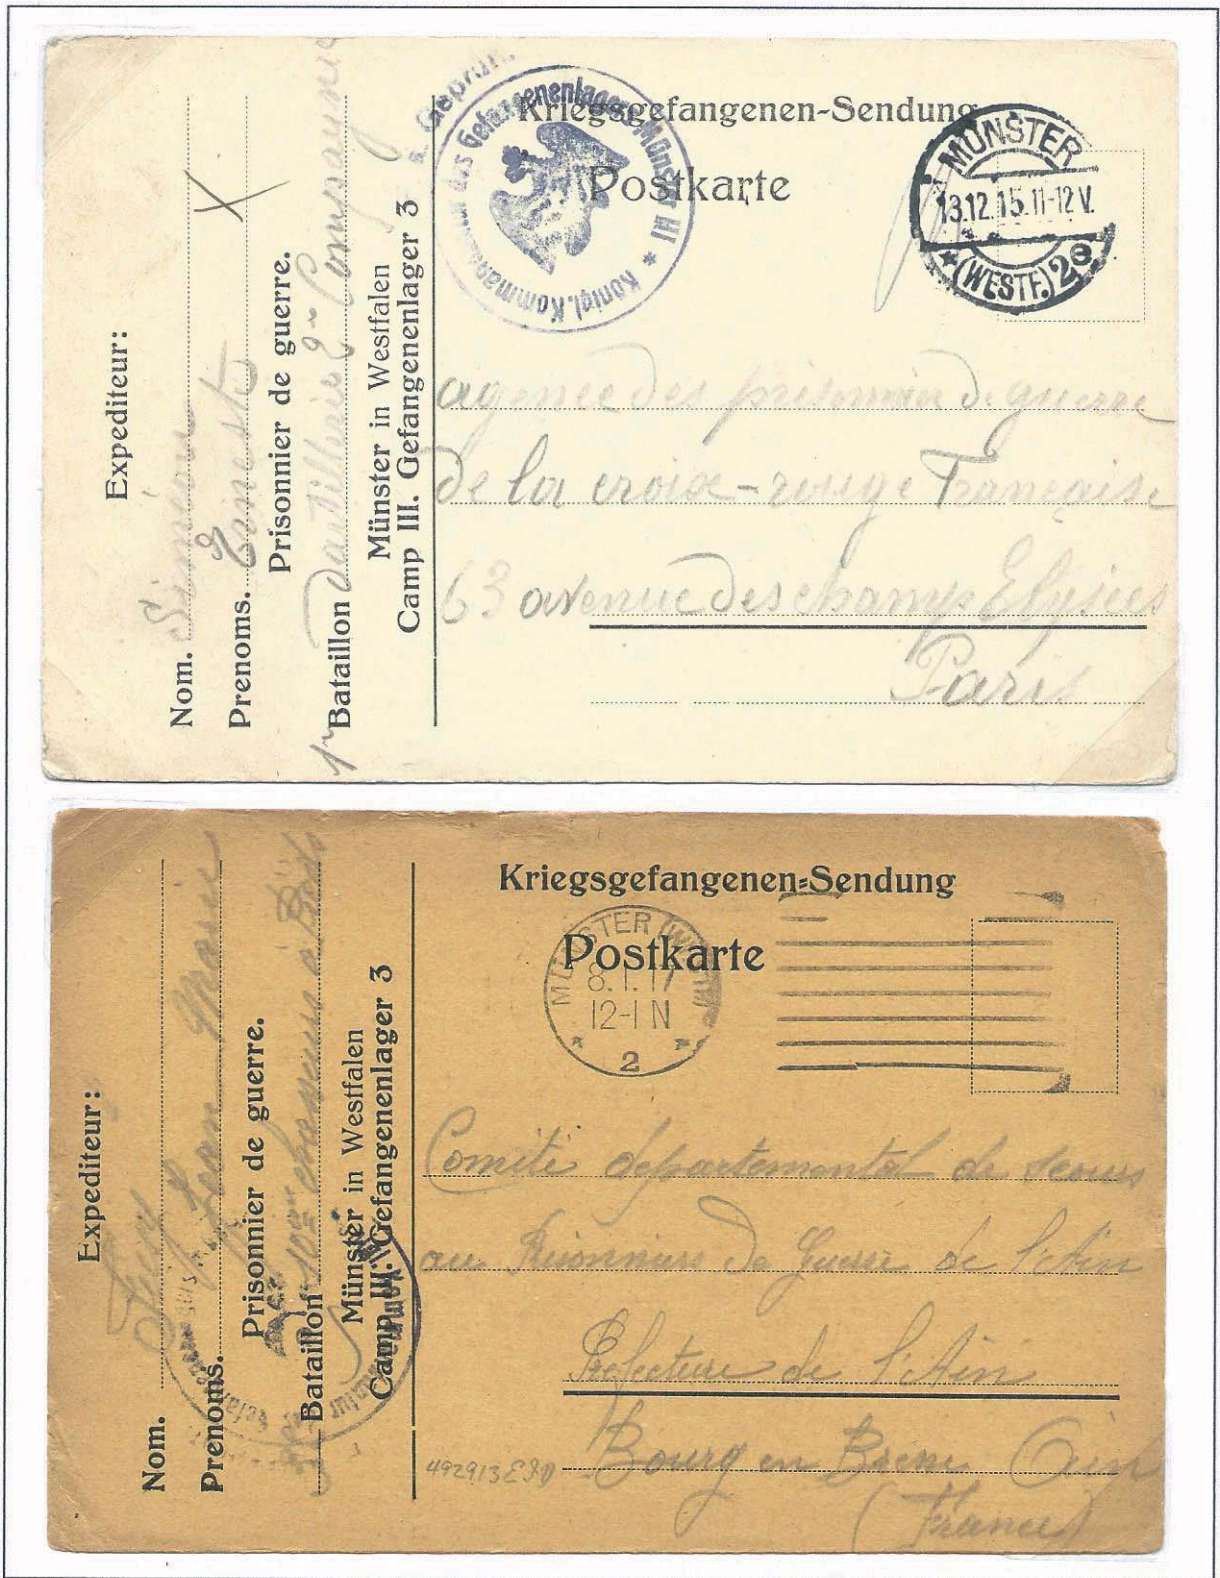 Expediteur:
Nom. Siméon
Prenoms. Ernest
Prisonnier de guerre.
1er Bataillon d'artillerie 2e Compagnie
Münster in Westfalen
Camp III. Gefangenenlager 3
Geprüft
Königl. Kommandantur des Gefangenenlagers Münster III *
Kriegsgefangenen-Sendung
Postkarte
MÜNSTER
13.12.15.11-12 V.
* (WESTF.) 2e
agence des prisonnier de guerre
de la croix-rouge Française
63 avenue des champs Elysées
Paris
Expediteur:
Nom.
Prenoms. Léon Marie
Prisonnier de guerre.
Bataillon 10eme chasseurs à Pieds
Münster in Westfalen
Camp III. Gefangenenlager 3
Kriegsgefangenen-Sendung
Postkarte
MÜNSTER (WESTF)
8.1.17
12-1 N
* 2 *
Comité departemental de secours
au Prisonniers de Guerre de l'Ain
Prefecture de l'Ain
Bourg en Bresse Ain
(France)